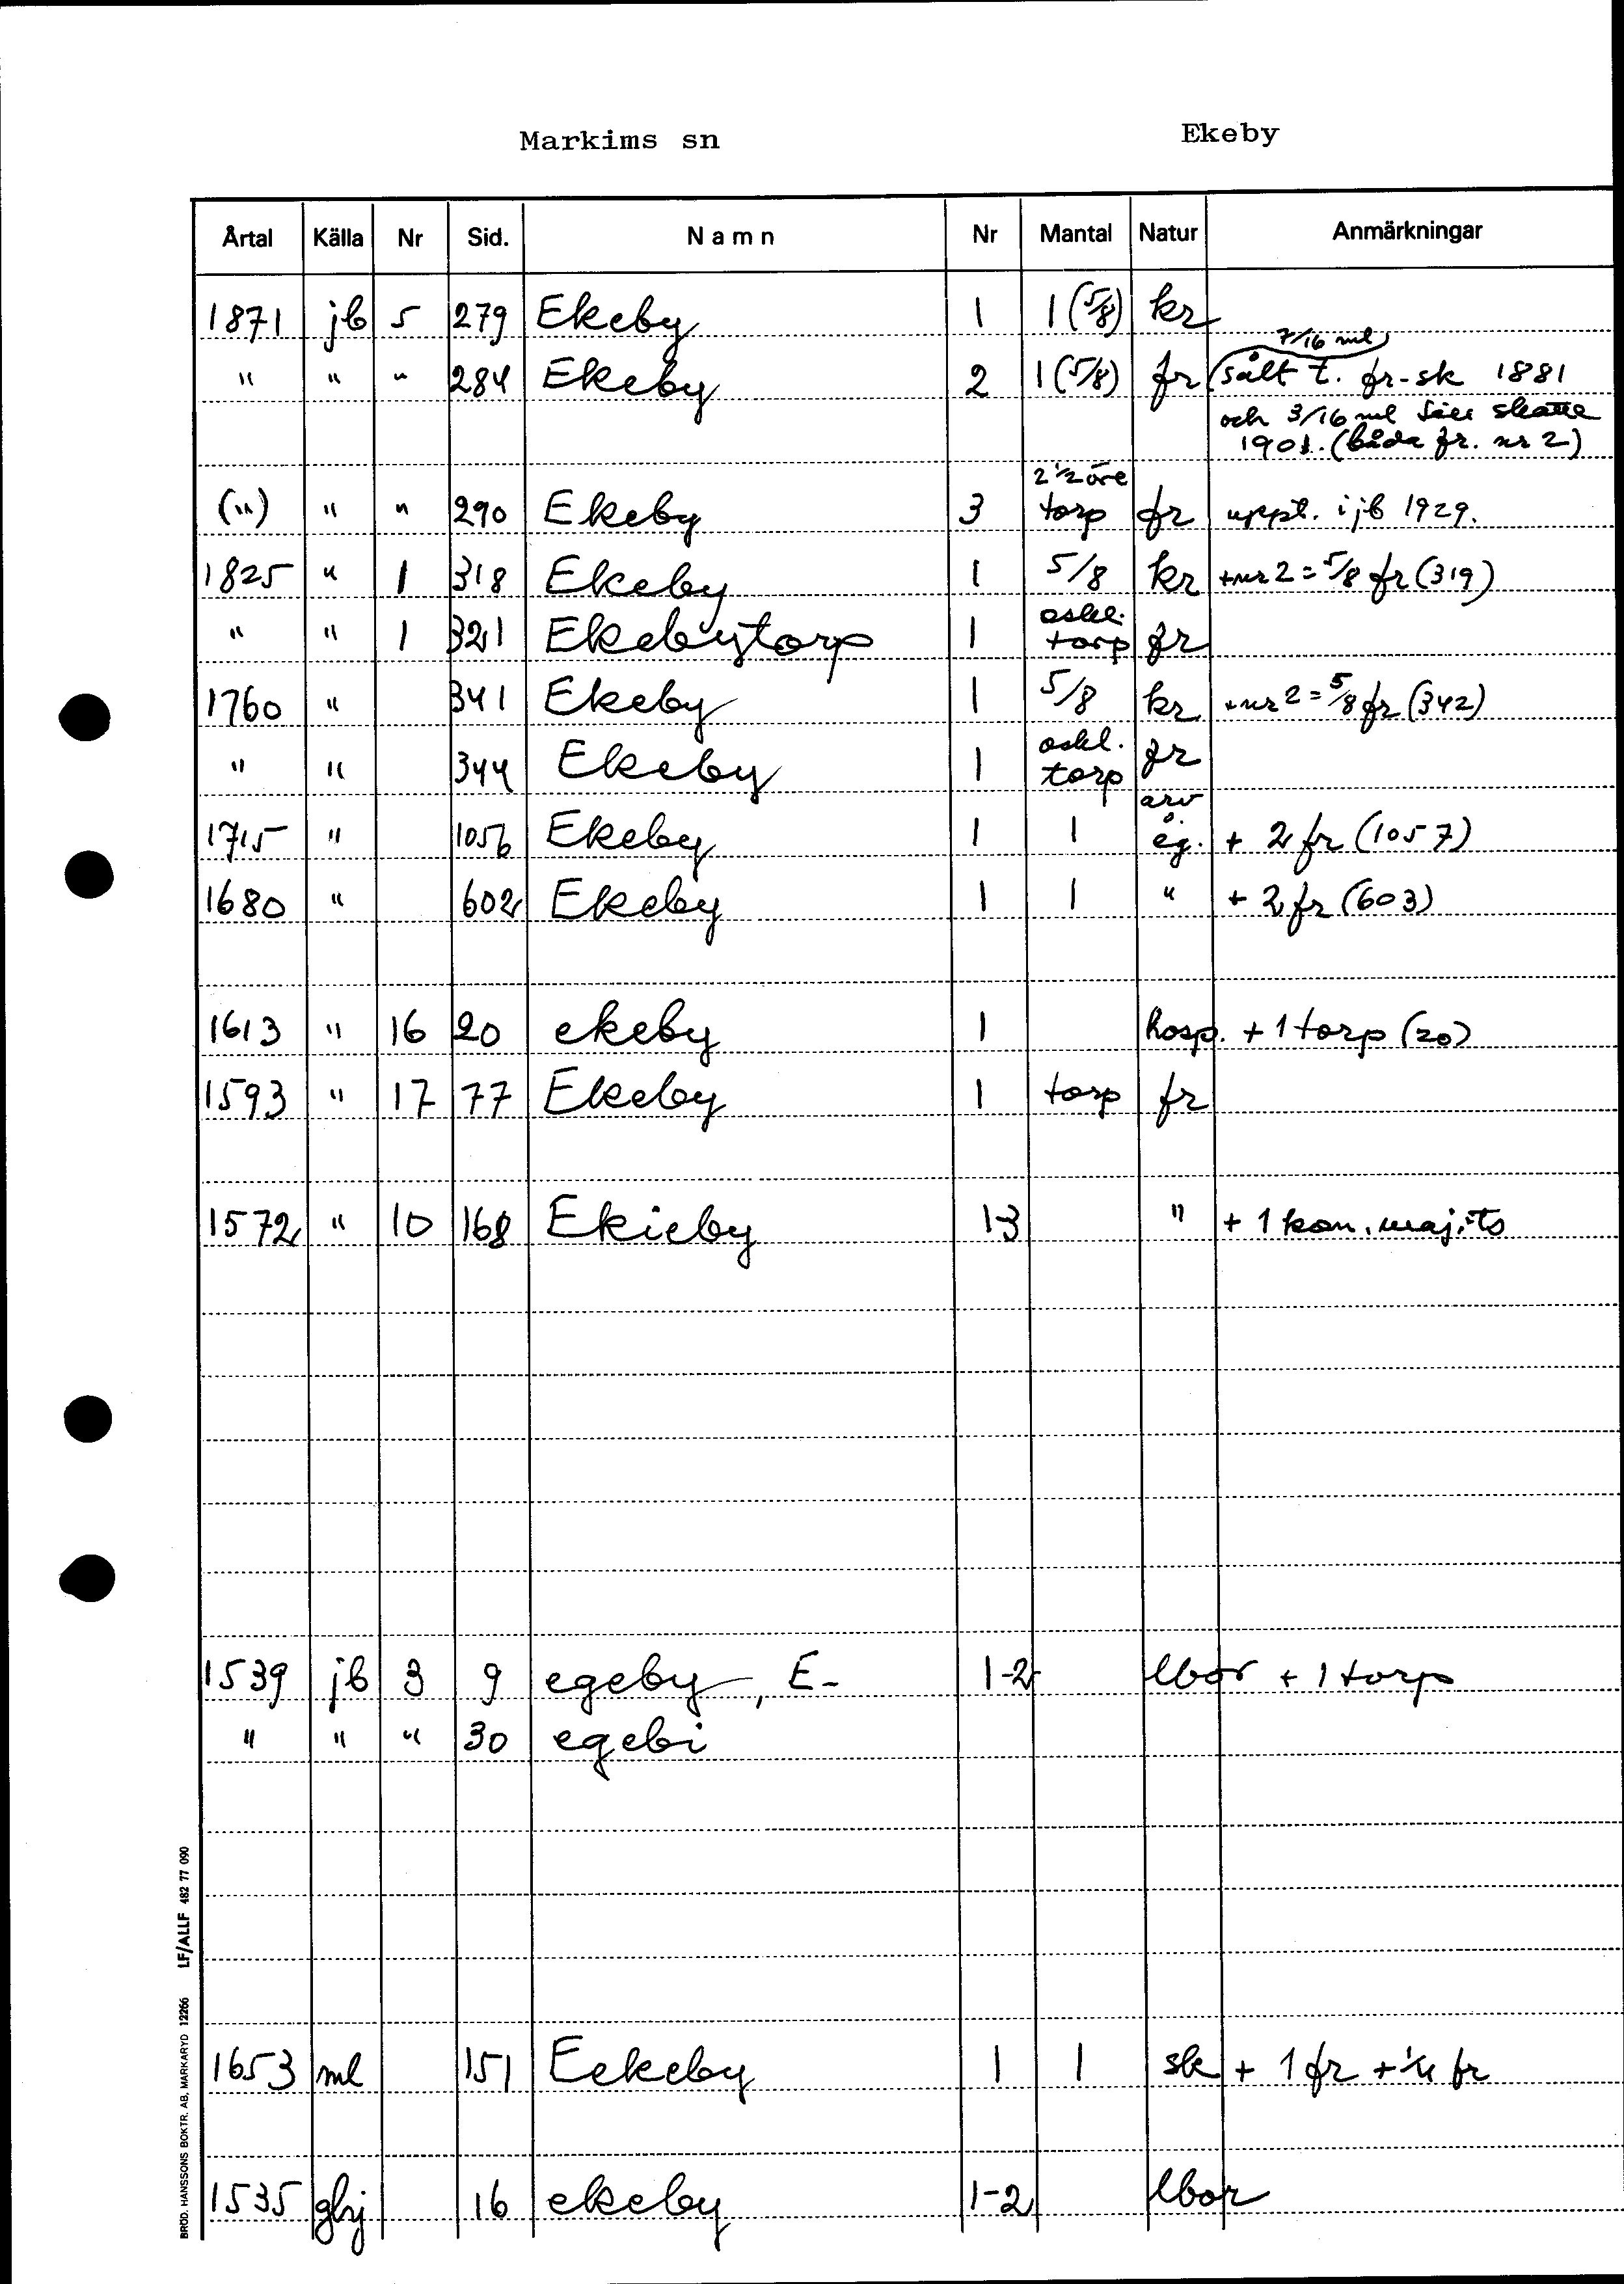 Markims sn Ekeby
Årtal Källa Nr Sid. Namn Nr Mantal Natur Anmärkningar
1871 jb 5 279 Ekeby 1 1 (5/8) kr
7/16 ml
" " " 284 Ekeby 2 1 (5/8) fr sålt t. fr-sk 1881
och 3/16 ml skatte
1901. (båda fr. nr 2)
2 1/2 öre
(") " " 290 Ekeby 3 torp fr uppt. i jb 1929.
1825 " 1 318 Ekeby 1 5/8 kr + nr 2 = 5/8 fr (319)
oskl.
" " 1 321 Ekebytorp 1 torp fr
1760 " 341 Ekeby 1 5/8 kr + nr 2 = 5/8 fr (342)
oskl.
" " 344 Ekeby 1 torp fr
arv
o.
1715 " 1056 Ekeby 1 1 eg. + 2 fr (1057)
1680 " 602 Ekeby 1 1 " + 2 fr (603)
1613 " 16 20 ekeby 1 hosp. + 1 torp (20)
1593 " 17 77 Ekeby 1 torp fr
1572 " 10 168 Ekieby 1-3 " + 1 kon. maj:ts
1539 jb 3 9 egeby, E- 1-2 lbor + 1 torp
" " " 30 egebi
1653 ml 151 Eekeby 1 1 sk + 1 fr + 1/4 fr
1535 ghj 16 ekeby 1-2 lbor
BRÖD. HANSSONS BOKTR. AB, MARKARYD 12266 LF/ALLF 482 77 090